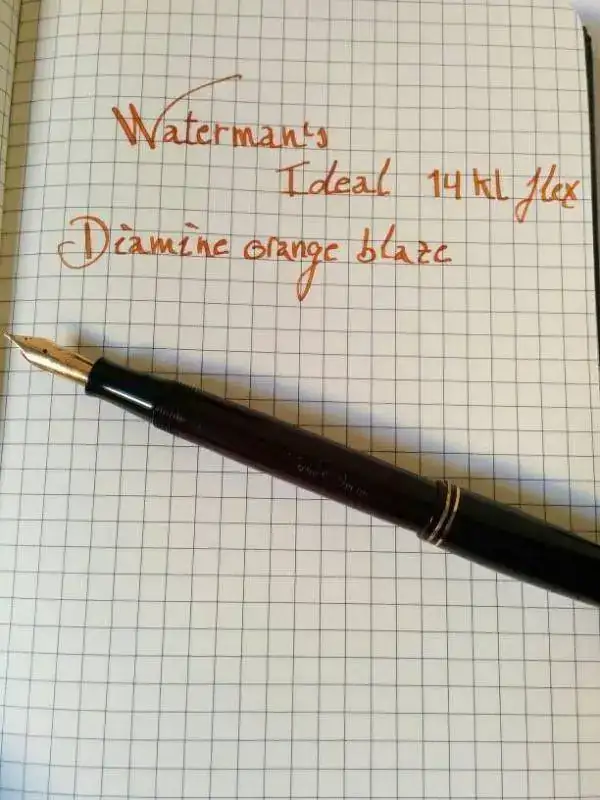 Waterman's
Ideal 14 kl flex
Diamine orange blaze